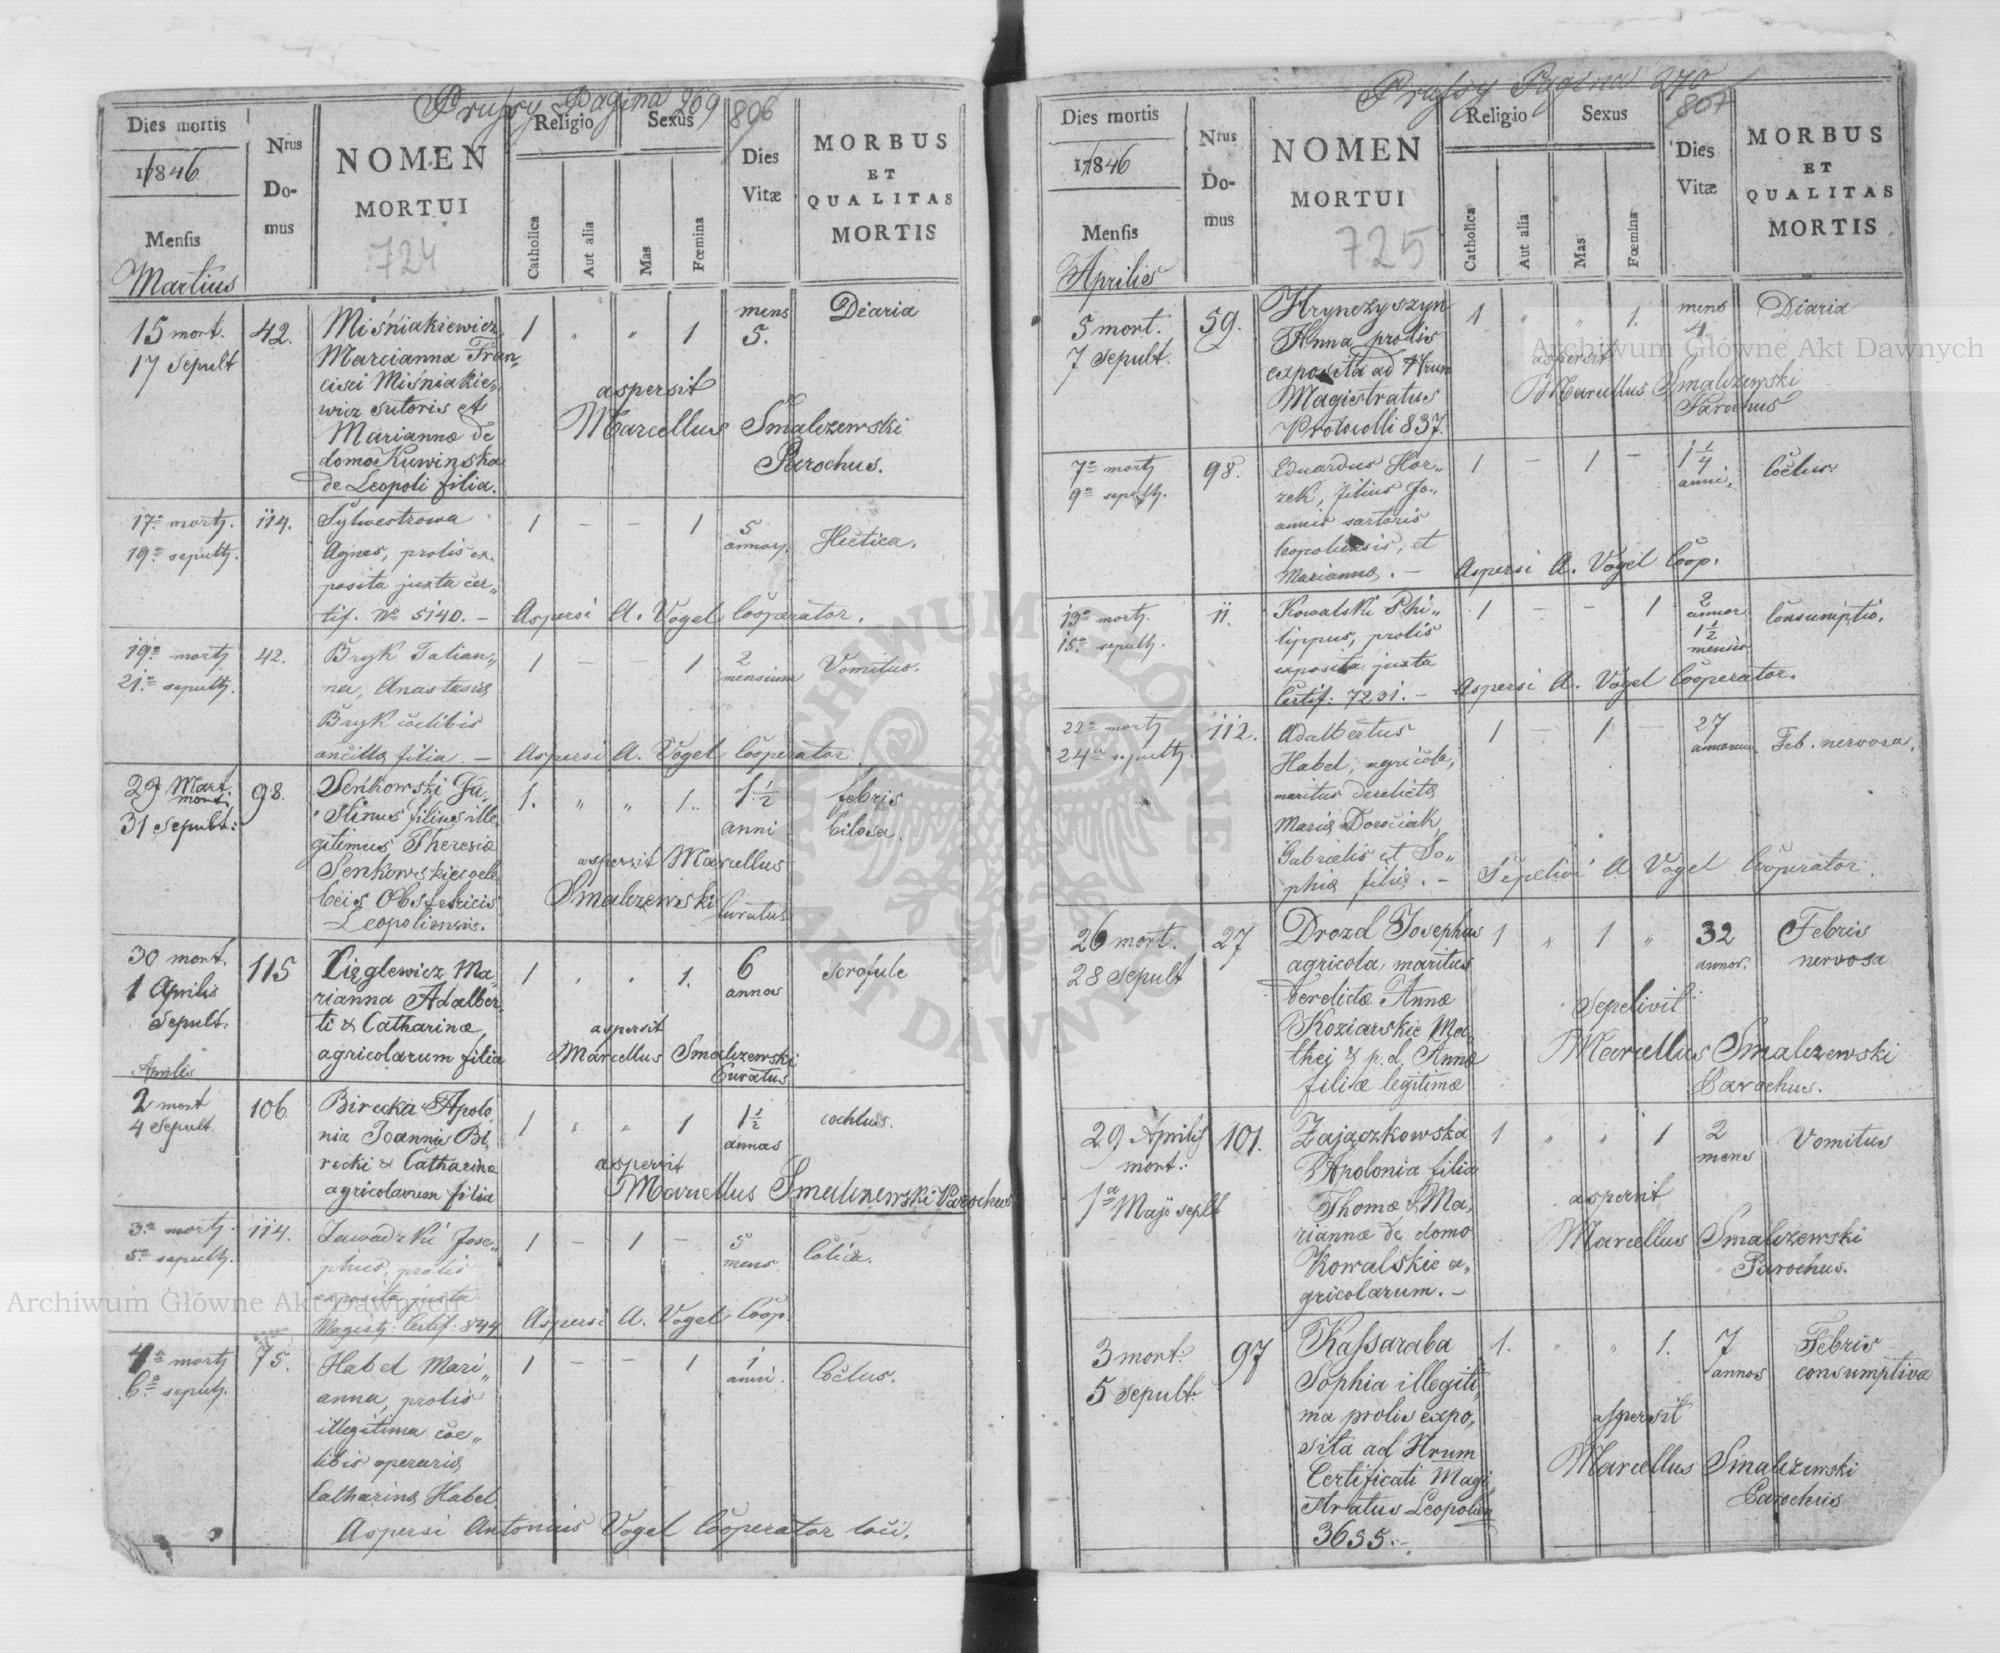 Prussy Pagina 269
806
Dies mortis
1846
Mensis
Martius
Nrus
Do-
mus
NOMEN
MORTUI
724
Religio
Sexus
Catholica
Aut alia
Mas
Fœmina
Dies
Vitæ
MORBUS
ET
QUALITAS
MORTIS
15 mort.
17 Sepult
42.
Miśniakiewicz
Marcianna Fran„
cisci Miśniakie„
wicz sutoris et
Mariannæ de
domo Kuwinska
de Leopoli filia.
1 " " 1
mens
5.
Diaria
aspersit
Marcellus Smalczewski
Parochus.
17a mort.
19a sepult.
114.
Sylwestrowa
Agnes, prolis ex„
posita juxta cer„
tif. No 5140. –
1 – – 1
5
annor.
Hectica.
Aspersi A. Vogel Cooperator.
19a mort
21a sepult.
42.
Bryk Tatian„
na, Anastasiæ
Bryk cœlibis
ancillæ filia. –
1 – – 1
2
mensium
Vomitus.
Aspersi A. Vogel Cooperator
29 Mart.
mort.
31 Sepult:
98.
Senkowski Ju„
stinus filius ille„
gitimus Theresiæ
Senkowskie cœle
beis Obstetricis
Leopoliensis.
1. " " 1.
1 1/2
anni
febris
bilosa.
aspersit Marcellus
Smalczewski Curatus
30 mort.
1 Aprilis
Sepult.
115
Cięglewicz Ma„
rianna Adalber„
ti & Catharinæ
agricolarum filia
1 " " 1.
6
annos
Scrofule
aspersit
Marcellus Smalczewski
Curatus
Aprilis
2 mort
4 Sepult.
106
Birecka Apolo
nia Joannis Bi„
recki & Catharinæ
agricolarum filia
1 " " 1
1 1/2
annos
cochlus.
aspersit
Marcellus Smalczewski Parochus
3a mort.
5a sepult.
114.
Zawadzki Jose„
phus, prolis
exposita juxta
Magist: Certif: 844
1 – 1 –
5
mens
Colica.
Aspersi A. Vogel Coop.
4a mort
6a sepult.
75.
Habel Mari„
anna, prolis
illegitima cœ„
libis operariæ
Catharinæ Habel
1 – – 1
1
anni.
Coctus.
Aspersi Antonius Vogel Cooperator loci.
Prussy Pagina 270
807
Dies mortis
1846
Mensis
Aprilis
Nrus
Do-
mus
NOMEN
MORTUI
725
Religio
Sexus
Catholica
Aut alia
Mas
Fœmina
Dies
Vitæ
MORBUS
ET
QUALITAS
MORTIS
5 mort.
7 sepult.
59.
Hrynczyszyn
Anna prolis
exposita ad Nrum
Magistratus
Protocolli 837.
1 " " 1.
mens
4
Diaria
aspersit
Marcellus Smalczewski
Parochus
7a mort
9a sepult.
98.
Eduardus Hor„
rek, filius Jo„
annis sartoris
leopoliensis, et
Mariannæ. –
1 – 1 –
1 1/4
anni.
Coctus.
Aspersi A. Vogel Coop.
13a mort.
15a sepult.
11.
Kowalski Phi„
lippus, prolis
exposita juxta
Certif: 7231. –
1 – – 1
2
annor
1 1/2
mensis
Consumptio.
Aspersi A. Vogel Cooperator.
22a mort
24a sepult.
112.
Adalbertus
Habel, agricola,
maritus derelictæ
Mariæ Dorociak,
Gabrielis et So„
phiæ filiæ. –
1 – 1 –
27
annorum
Feb. nervosa.
Sepelivi A Vogel Cooperator.
26 mort.
28 Sepult
27
Drozd Josephus
agricola maritus
derelictæ Annæ
Koziarskie Ma„
thej & p. d. Annæ
filiæ legitimæ
1 " 1 "
32
annor.
Febris
nervosa
Sepelivit
Marcellus Smalczewski
Parochus.
29 Aprilis
mort.:
1a Maji seplt
101.
Zajączkowska
Apolonia filia
Thomæ & Ma„
riannæ de domo
Kowalskie a„
gricolarum. –
1 " " 1
2
mens
Vomitus
aspersit
Marcellus Smalczewski
Parochus.
3 mort:
5 Sepult:
97
Kassaraba
Sophia illegiti„
ma prolis expo„
sita ad Nrum
Certificati Magi„
stratus Leopolien
3655. –
1. " " 1.
7
annos
Febris
consumptiva
aspersit
Marcellus Smalczewski
Parochus
Archiwum Główne Akt Dawnych
Archiwum Główne Akt Dawnych
ARCHIWUM GŁÓWNE AKT DAWNYCH